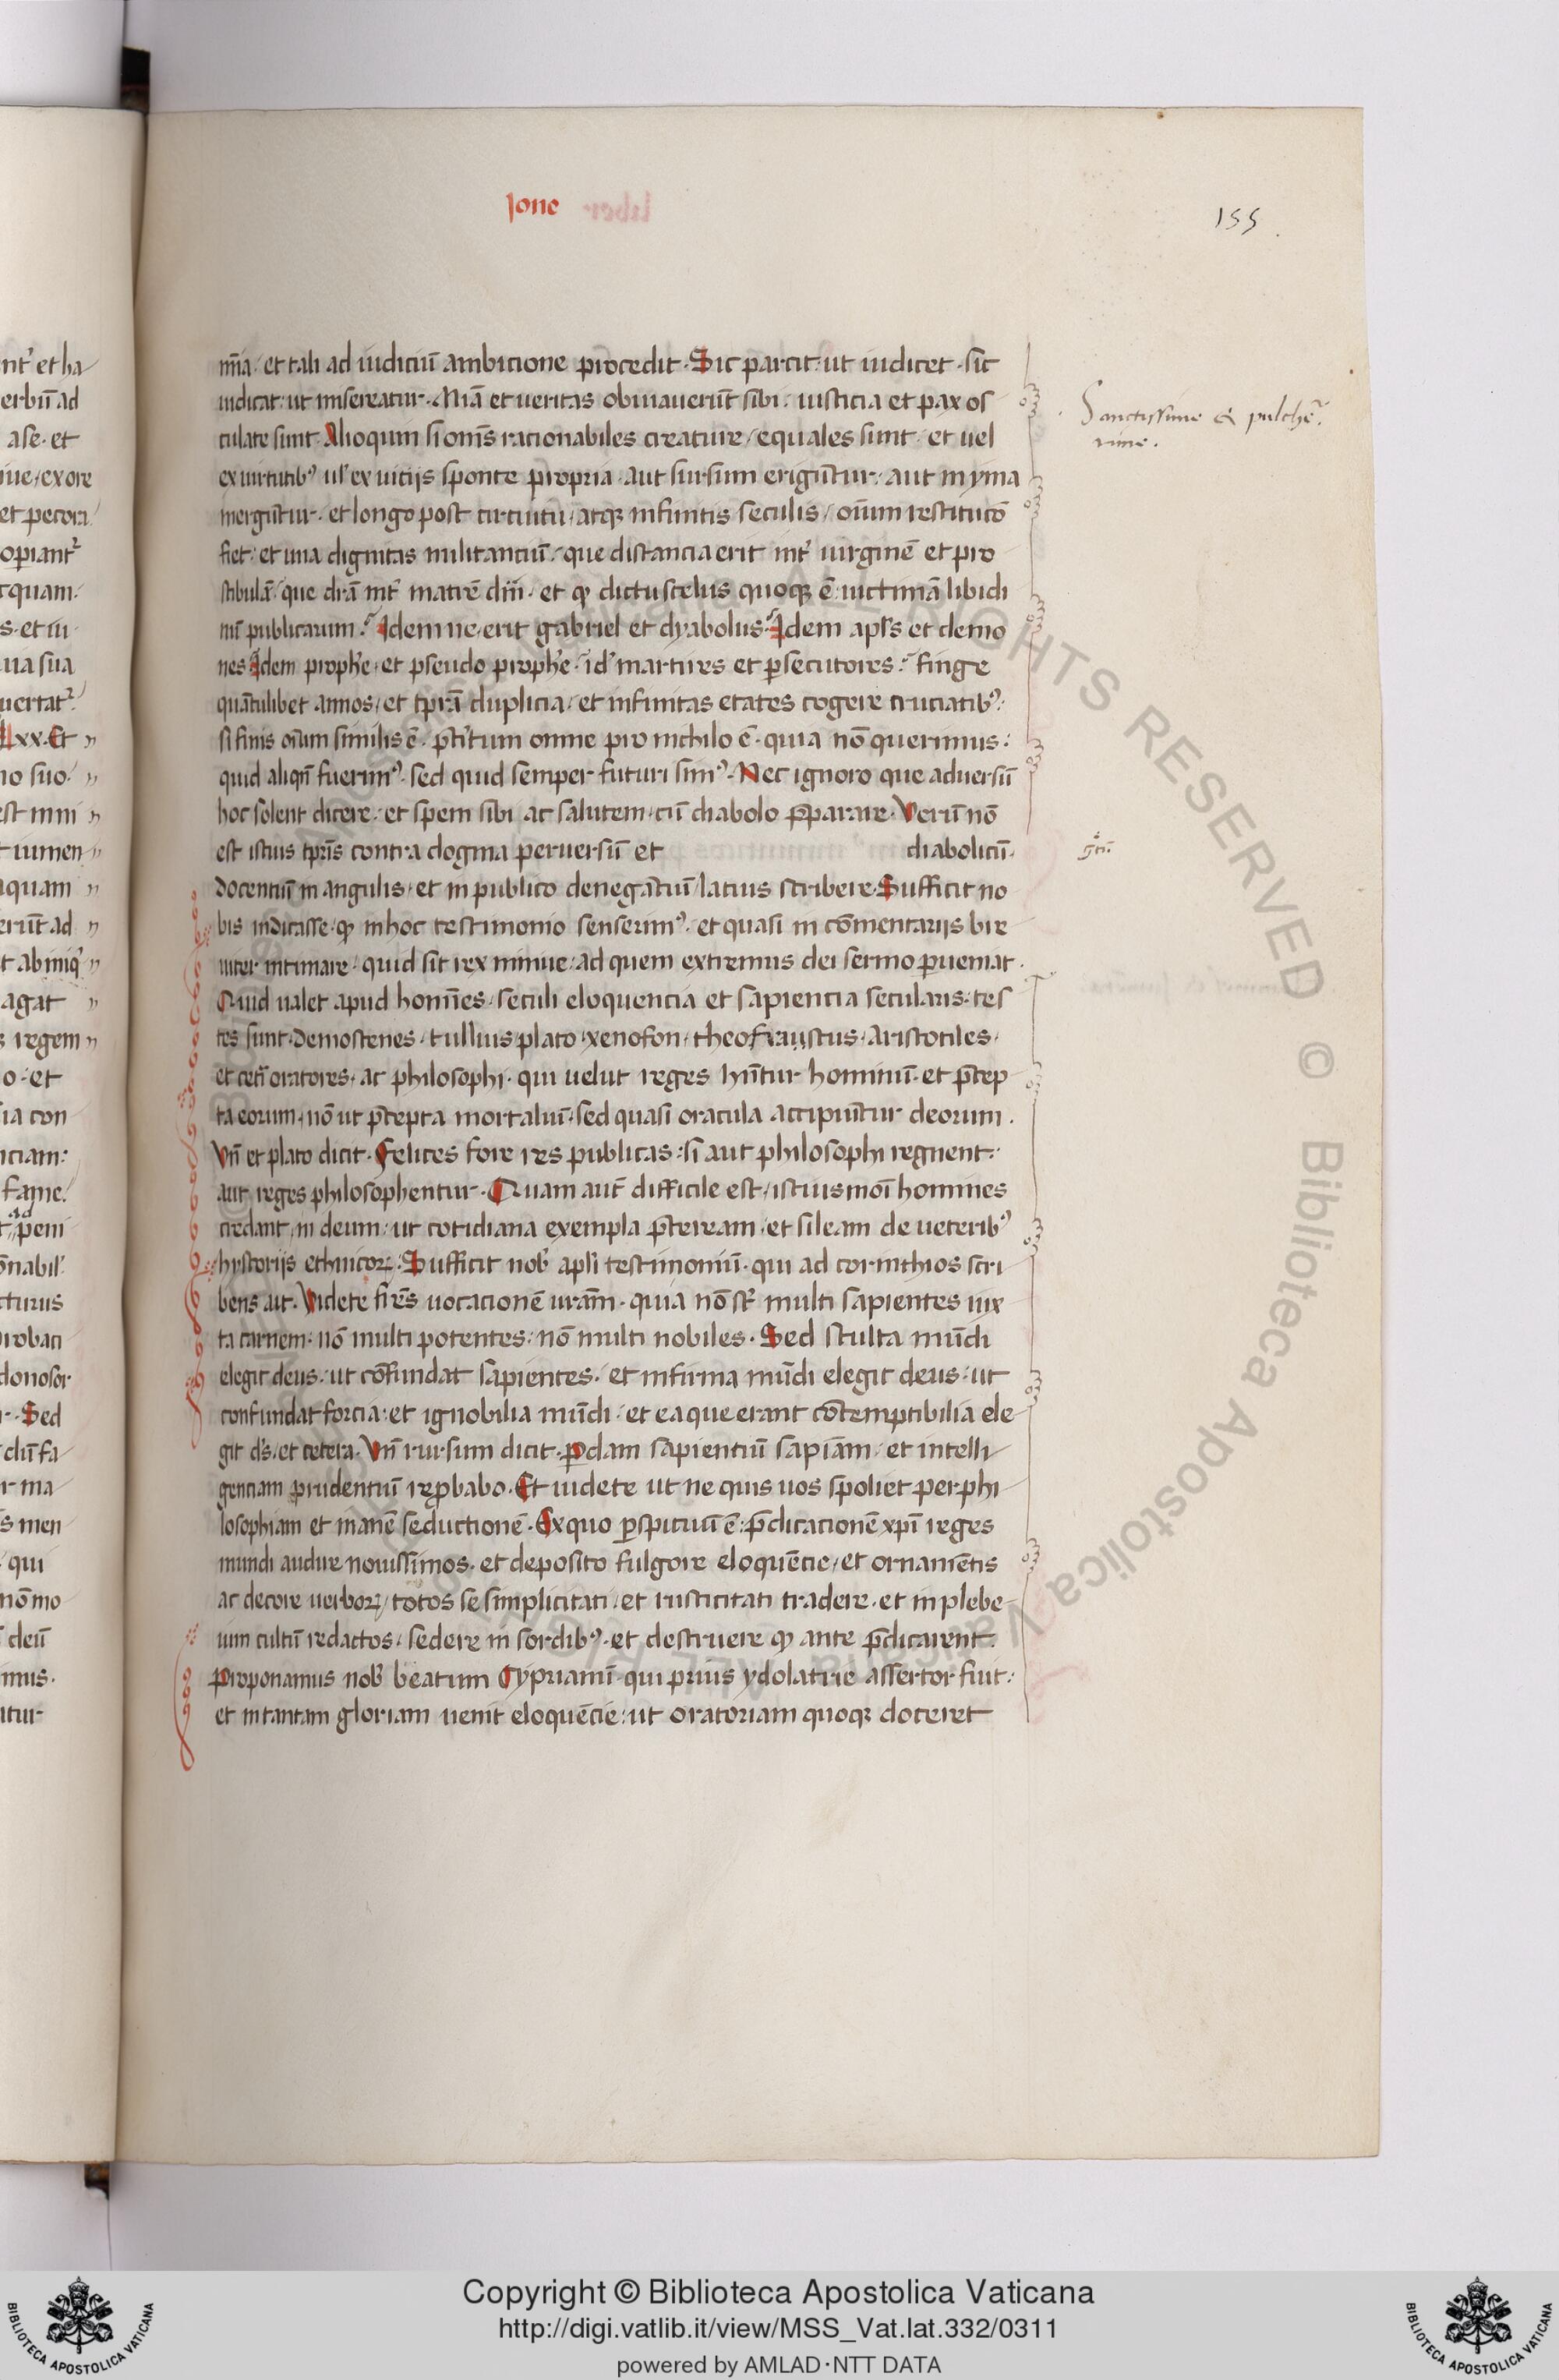 Ione
155
mīa· et tali ad iudiciū ambicione procedit· Sic parcit: ut iudicet· sic
iudicat: ut misereatur· Mīa et ueritas obuiauerūt sibi: iusticia et pax os
culate sunt· Alioquin si om̄s racionabiles creature/ equales sunt· et uel
ex uirtutib⁹ ul' ex uicijs sponte propria· aut sursum erigūtur: aut in yma
mergūtur· et longo post circuitu/ atqꝫ infinitis seculis/ oīum restitucō
fiet: et una dignitas militanciū/ que distancia erit int' uirginē et pro
stibulā: que dr̄a int' matrē dn̄i· et qꝫ dictu scelus quoqꝫ ē· uictimā libidi
nū publicarum? Idem ne erit gabriel et dyabolus? Idem apl's et demo
nes Idem prophe· et pseudo prophe· id' martires et ꝑsecutores? finge
quātulibet annos/ et tꝑra duplicia/ et infinitas etates cogere cruciatib⁹:
si finis oīum similis ē· pt̄itum omne pro nichilo ē· quia nō querimus:
quid aliqn̄ fuerim⁹· sed quid semper futuri sim⁹· Nec ignoro que aduersū
hoc solent dicere· et spem sibi ac salutem· cū diabolo p̄parare· Verū nō
est istius tp̄ris contra dogma peruersū et diabolicū·
docentiū in angulis· et in publico denegātiū/ latius scribere· Sufficit no
bis indicasse· qꝫ in hoc testimonio senserim⁹· et quasi in cōmentarijs bre
uiter intimare· quid sit rex niniue: ad quem extremus dei sermo ꝑueniat·
Quid ualet apud homīes· seculi eloquencia et sapiencia secularis: tes
tes sunt· demostenes· tullius plato· xenofon· theofraustus· aristotiles·
et cetī oratores· ac philosophi· qui uelut reges hn̄tur hominū· et p̄cep
ta eorum· nō ut p̄cepta mortaliū· sed quasi oracula accipiūtur deorum·
Vn̄ et plato dicit· Felices fore res publicas: si aut philosophi regnent:
aut reges philosophentur· Quam aut̄ difficile est/ istiusmoī homines
credant in deum: ut cotidiana exempla p̄teream· et sileam de ueterib⁹
hystorijs ethnicoꝝ· Sufficit nob' apl'i testimoniū· qui ad corinthios scri
bens ait· Videte fr̄es uocacionē uram̄· quia nō st' multi sapientes iux
ta carnem: nō multi potentes: nō multi nobiles· Sed stulta mūdi
elegit deus: ut cōfundat sapientes· et infirma mūdi elegit deus: ut
confundat forcia: et ignobilia mūdi· et ea que erant cōtemptibilia ele
git ds̄· et cetera· Vn̄ rursum dicit· ꝑdam sapientiū sapiam̄· et intelli
genciam prudentiū reꝓbabo· Et uidete ut ne quis uos spoliet per phi
losophiam et inanē seductionē· Ex quo ꝑspicuū ē: p̄dicacionē xp̄i reges
mundi audire nouissimos· et deposito fulgore eloquēcie/ et ornamētis
ac decore uerboꝝ/ totos se simplicitati· et rusticitati tradere· et in plebe
ium cultū redactos: sedere in sordib⁹· et destruere qꝫ ante p̄dicarent:
Proponamus nob' beatum Cyprianū· qui prius ydolatrie assertor fuit:
et in tantam gloriam uenit eloquēcie: ut oratoriam quoqꝫ doceret
Sanctissime & pulcher
rime.
Copyright © Biblioteca Apostolica Vaticana
http://digi.vatlib.it/view/MSS_Vat.lat.332/0311
powered by AMLAD·NTT DATA